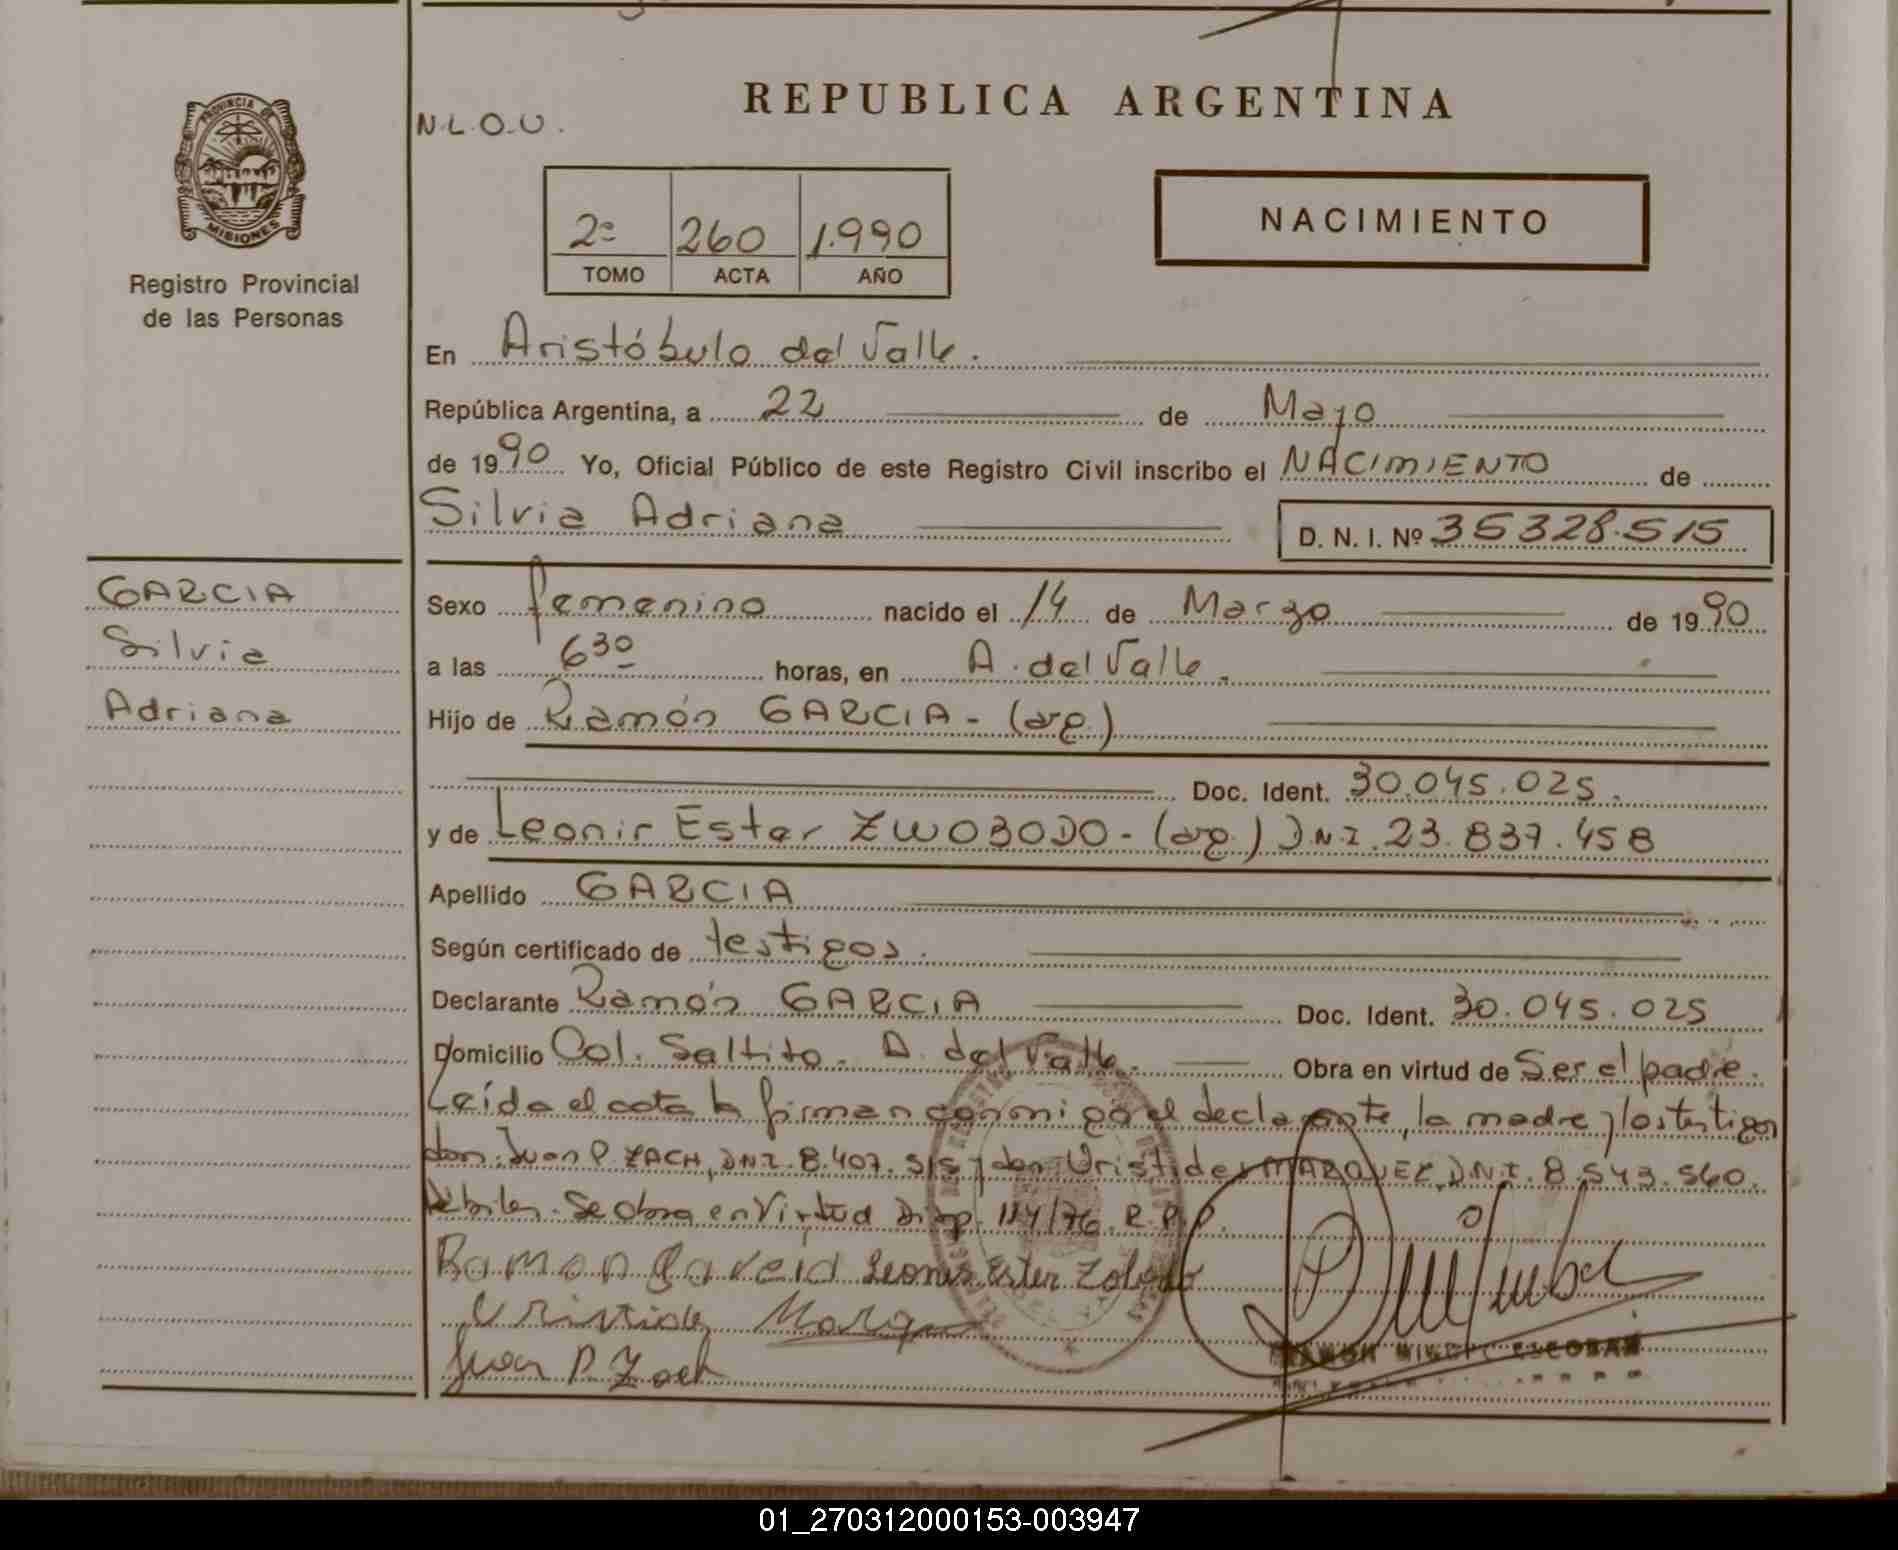 REPUBLICA ARGENTINA
N.L.O.U.
PROVINCIA DE
MISIONES
Registro Provincial
de las Personas
2º 260 1.990
TOMO ACTA AÑO
NACIMIENTO
En Aristóbulo del Valle.
República Argentina, a 22 de Mayo
de 1990 Yo, Oficial Público de este Registro Civil inscribo el NACIMIENTO de
Silvia Adriana D. N. I. Nº 35328.515
GARCIA
Silvia
Adriana
Sexo femenino nacido el 14 de Marzo de 1990
a las 630 horas, en A. del Valle.
Hijo de Ramón GARCIA - (arg.)
Doc. Ident. 30.045.025.
y de Leonir Ester ZWOBODO - (arg.) D.N.I. 23.837.458
Apellido GARCIA
Según certificado de testigos.
Declarante Ramón GARCIA Doc. Ident. 30.045.025
Domicilio Col. Saltito. A. del Valle. Obra en virtud de Ser el padre.
Leída el acta la firman conmigo el declarante, la madre y los testigos
don: Juan P. ZACH, DNI. 8.407.515 y don Uristides MARQUEZ, D.N.I. 8.543.560.
hábiles. Se obra en Virtud Disp. 114/76. R.P.P.
Ramon Garcia Leonir Ester
Uristides Marque
Juan P. Zach
ESCOBAR
01_270312000153-003947